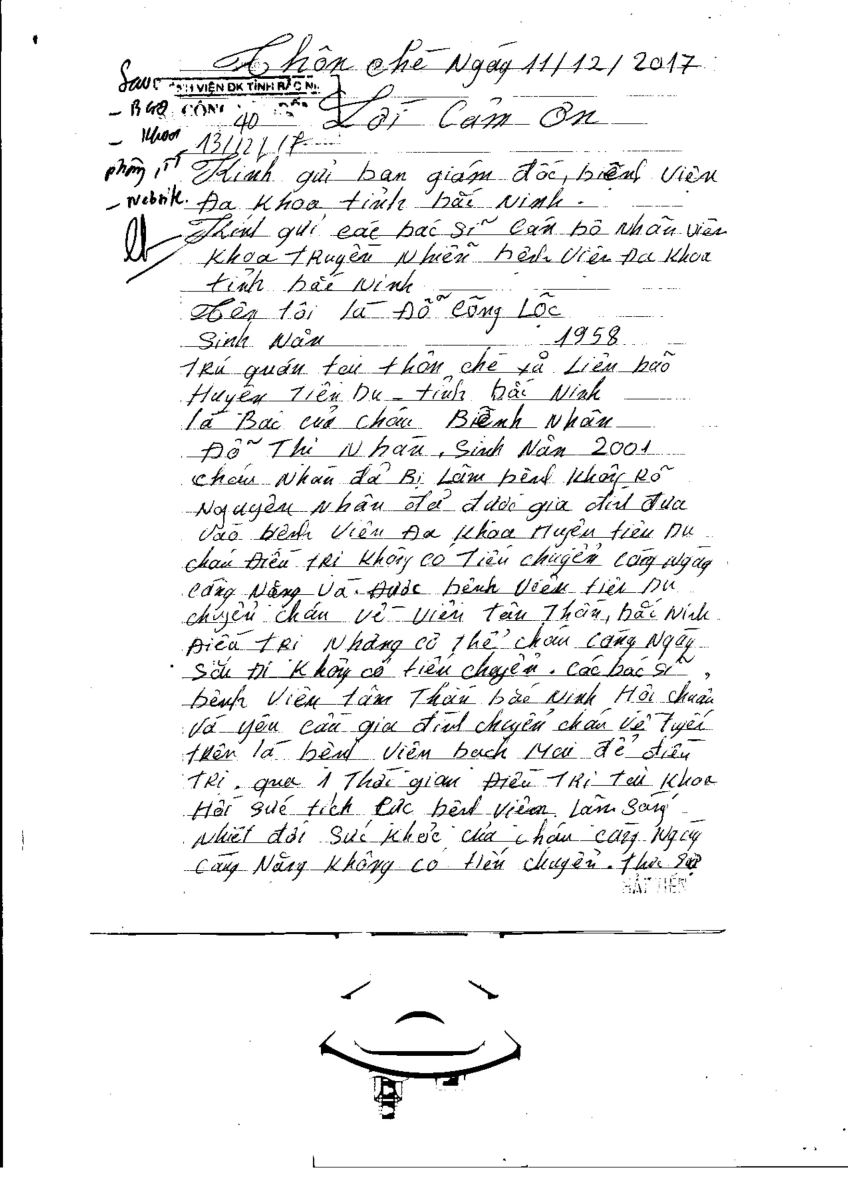 Thôn chè Ngày 11/12/2017
Sao
BỆNH VIỆN ĐK TỈNH BẮC NINH
- BGĐ
CÔNG
40
- Khoa
13/12/17
Lời Cảm ơn
Kính gửi ban giám đốc, biềnh viên
- Website.
Đa khoa tỉnh bắc Ninh.
Kính gửi các bác sĩ Cán bộ Nhân viên
Khoa TRuyền Nhiễn bênh viên Đa Khoa
tỉnh bắc Ninh
Tên tôi là Đỗ Công Lốc
Sinh Năn 1958
TRú quán tai thôn chè xã Liên bão
Huyên Tiên Du - tỉnh bắc Ninh
là Bac của cháu Biềnh Nhân
Đỗ Thi Nhàn, Sinh Năn 2001
cháu Nhàn đã Bị Lâm bênh Không Rõ
Nguyên Nhân đã đươc gia đình đưa
vào bênh viên Đa Khoa Huyên tiên Du
cháu Điều TRi Không co Tiến chuyển càng Ngày
càng Nặng và Đươc bênh viên tiên Du
chuyển cháu về viên tâm Thần, bắc Ninh
Điều TRi Nhưng cơ thể cháu càng Ngày
Sấu Đi Không có tiến chuyển. Các bác Sĩ,
bênh viên tâm Thần bắc Ninh Hôi chuẩn
và yêu cầu gia đình chuyển cháu về Tuyến
trên là bênh viên bach Mai để điều
TRi. qua 1 Thời gian Điều TRi tai Khoa
Hồi Sức tích Cưc bênh viêm Lâm Sàng
Nhiêt đới Sức Khỏe của cháu càng Ngày
càng Nặng Không có tiến chuyển. Thưc Sự